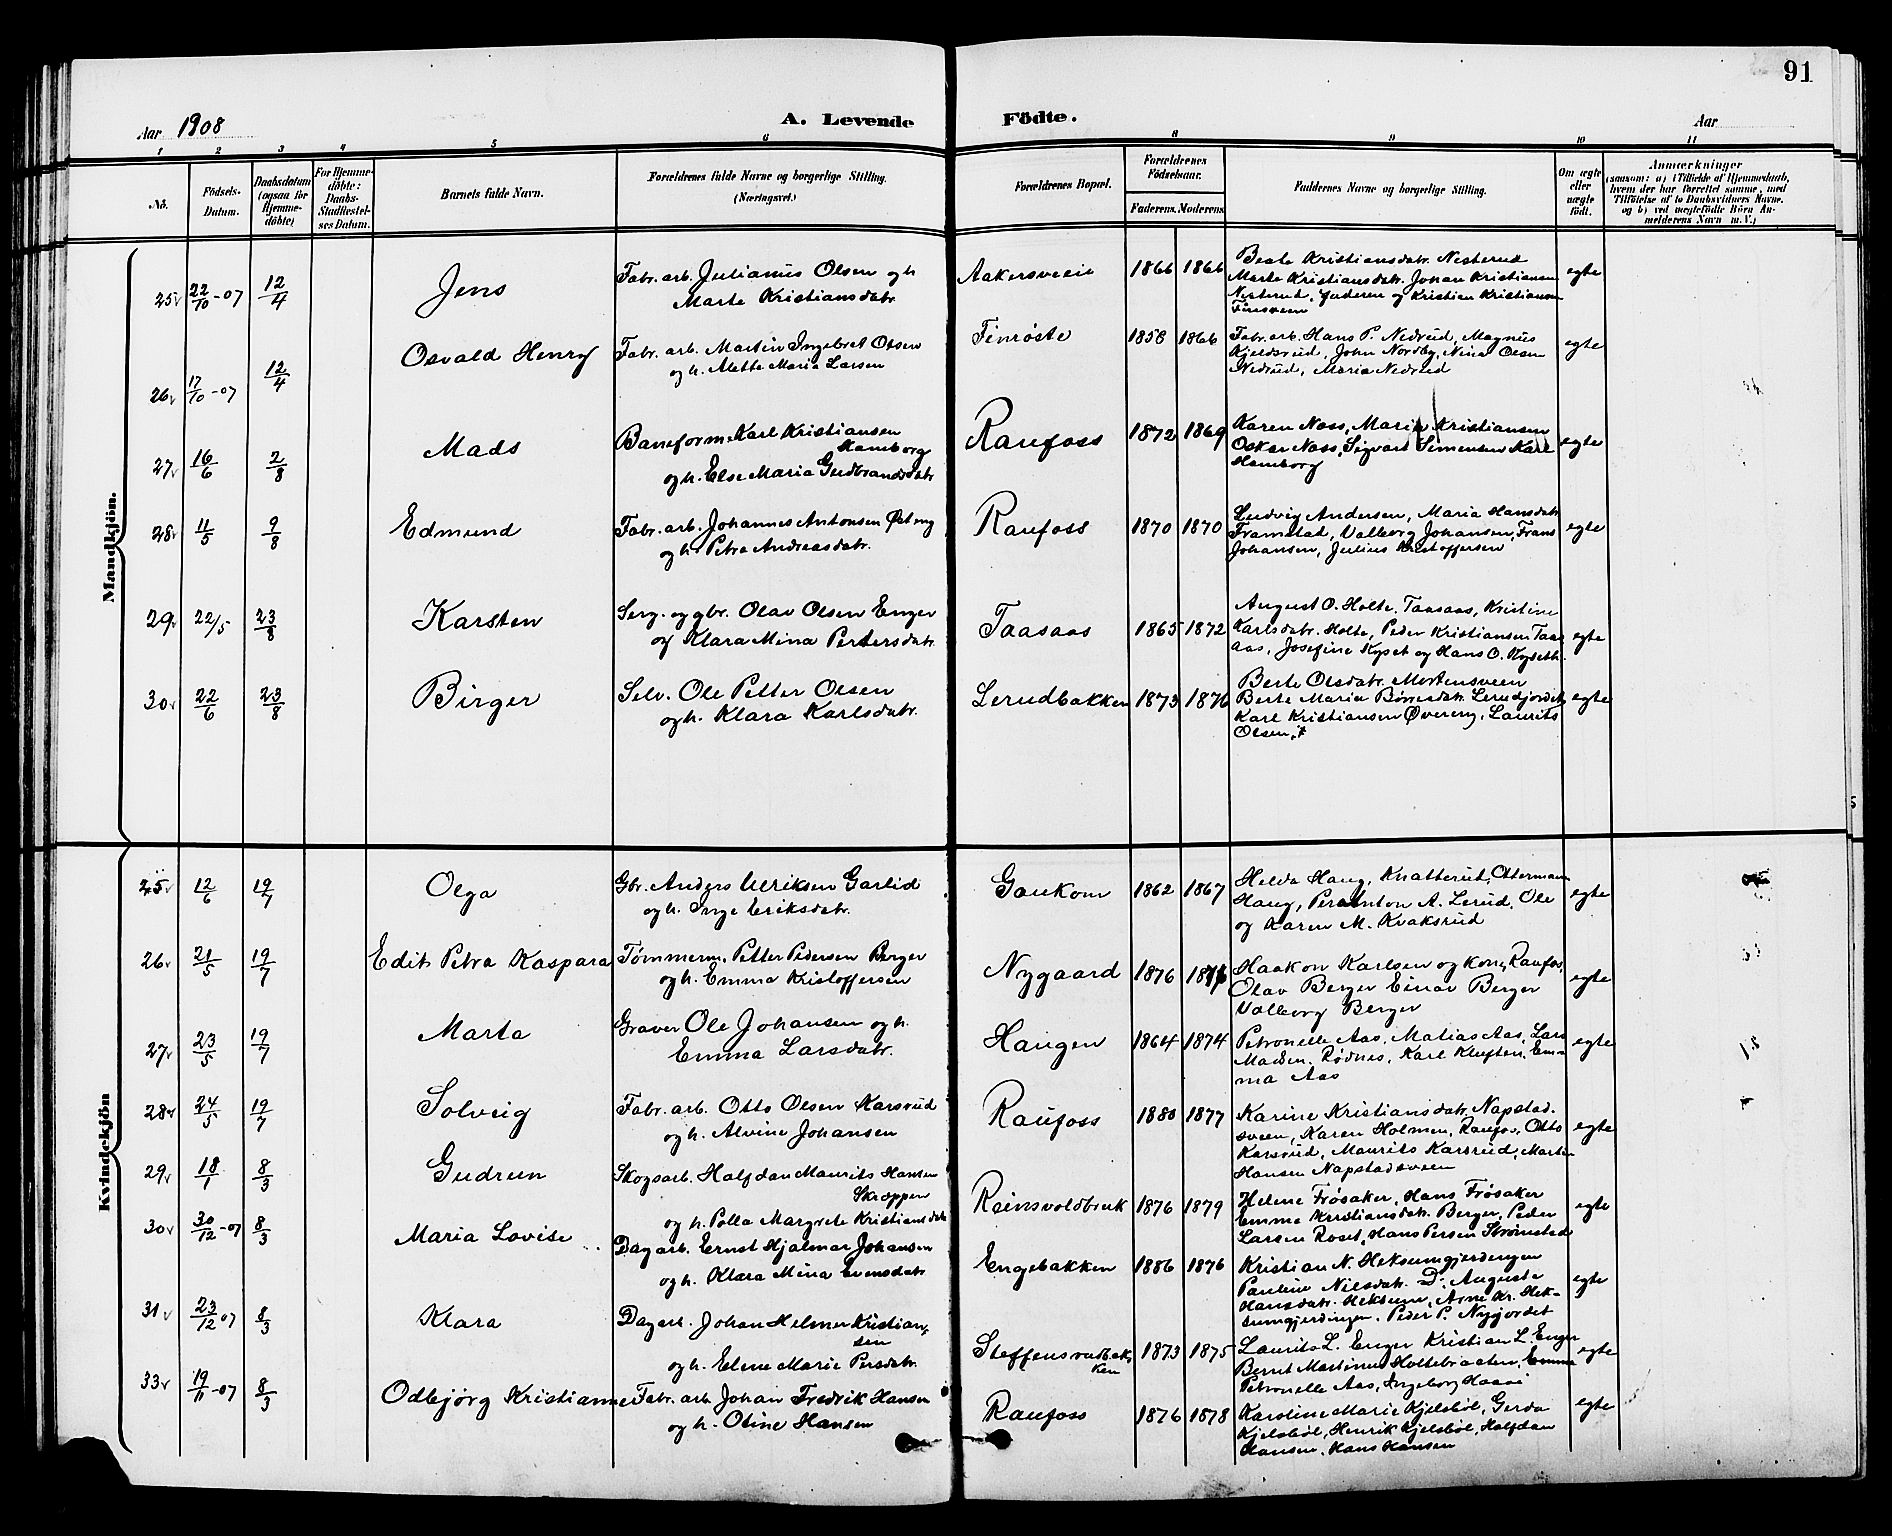 91
Aar 1908
A. Levende Födte.
Aar
1 2 3 4 5 6 8 9 10 11
No.
Födsels-Datum.
Daabsdatum (ogsaa for Hjemme-döbte)
For Hjemme-döbte: Daabs-Stadfæstel-ses Datum.
Barnets fulde Navn.
Forældrenes fulde Navne og borgerlige Stilling. (Næringsvei.)
Forældrenes Bopæl.
Forældrenes Födselsaar.
Faderens. Moderens.
Faddernes Navne og borgerlige Stilling.
Om ægte eller uægte födt.
Anmærkninger
(saasom: a) i Tilfælde af Hjemmedaab, hvem der har forrettet samme, med Tilföielse af to Daabsvidners Navne, og b) ved uægtefödte Börn An-melderens Navn m. V.)
Mandkjön.
25 22/10-07 12/4 Jens Fabr. arb. Julianus Olsen og h
Marte Kristiansdatr. Aakersveen 1866 1866 Beate Kristiansdatr. Nesterud
Marte Kristiansdatr. Johan Kristiansen
Nesterud, og Kristian Kristiansen
26 17/10-07 12/4 Osvald Henry Fabr. arb. Martin Ingebret Olsen
og h. Alette Maria Larsen Finröste 1858 1866 Fabr. arb. Hans P. Nedrud, Magnus
Kjeldsrud, John Nordby, Nina Olsen
Nedrud, Maria Nedrud egte
27 16/6 2/8 Mads Baneform. Karl Kristiansen
Hamborg
og h. Else Maria Gudbrandsdatr Raufoss 1872 1869 Karen Nass, Marie Kristiansen
Oskar Nass, Sigvart Simensen Karl
Hamborg egte
28 11/5 9/8 Edmund Fabr. arb. Johannes Antonsen Östeng
og h. Petra Andreasdatr. Raufoss 1870 1870 Ludvig Andersen, Maria Hansdatr
Framstad, Valborg Johansen, Frans
Johansen, Julius Kristoffersen egte
29 22/5 23/8 Karsten Serg. og gbr. Olav Olsen Enger
og Klara Mina Pettersdatr. Taasaas 1865 1872 August O. Holte, Taasaas, Kristine
Karlsdatr. Holte, Peder Kristiansen Taas-
aas, Josefine Kyset og Hans O. Kyseth. egte
30 22/6 23/8 Birger Selv. Ole Petter Olsen
og h. Klara Karlsdatr. Lerudbakken 1873 1876 Berte Olsdatr. Mortensveen
Berte Maria Börresdatr. Lerudjordet,
Karl Kristiansen Övereng, Laurits
Olsen egte
Kvindekjön
25 12/6 19/7 Olga Gbr. Anders Ulriksen Garlid
og h. Inge Eriksdatr. Gaukom 1862 1867 Helda Haug, Knatterud, Otterman
Haug, Per Anton A. Lerud, Ole
og Karen M. Kvaksrud egte
26 21/5 19/7 Edit Petra Kaspara Tömmerm. Petter Pedersen Berger
og h. Emma Kristoffersen Nygaard 1876 Haakon Karlsen og kone, Raufos,
Olav Berger Einar Berger
Valborg Berger egte
27 23/5 19/7 Marta Graver Ole Johansen og h.
Emma Larsdatr. Haugen 1864 1874 Petronelle Aas, Matias Aas, Lars
Madsen, Rödnes, Karl Kluften, Em-
ma Aas egte
28 24/5 19/7 Solveig Fabr. arb. Otto Olsen Karsrud
og h. Alvine Johansen Raufoss 1880 1877 Karine Kristiansdatr. Napstad-
sveen, Karen Holmen, Raufos, Otto
Karsrud, Maurits Karsrud, Martin
Hansen Napstadsveen egte
29 18/1 8/3 Gudrun Skogsarb. Halfdan Maurits Hansen
Skroppen
og h. Polla Margrete Kristiansdatr Reinsvoldbruk 1876 1879 Helene Frösaker, Hans Frösaker
Emma Kristiansdatr. Berger, Peder
Larsen Roset, Hans Persen Strömstad egte
30 30/12-07 8/3 Maria Lovise Dagarb. Ernst Hjalmar Johansen
og h. Klara Mina Evensdatr Engebakken 1886 1876 Kristian N. Heksumgjerdingen
Pauline Nilsdatr. Do. Auguste
Hansdatr. Heksum, Arne Kr. Hek-
sumgjerdingen, Peder P. Nygjordet egte
31 23/12 07 8/3 Klara Dagarb. Johan Helmer Kristian-
sen
og h. Elene Marie Persdatr. Steffensrudbak-
ken 1873 1875 Laurits L. Enger Kristian L. Enger
Bernt Martinus Holtebraaten, Emma
Petronelle Aas, Ingeborg egte
33 19/11-07 8/3 Odbjörg Kristianne Fabr. arb. Johan Fredrik Hansen
og h. Otine Hansen Raufoss 1876 1878 Karoline Marie Kjelsböl, Gerda
Kjelsböl, Henrik Kjelsböl, Halfdan
Hansen, Hans Hansen egte